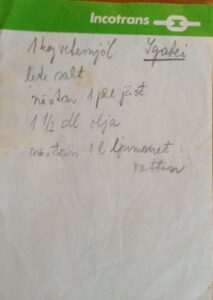 Incotrans
1 kg vetemjöl
lite salt
nästan 1 pk jäst
1 1/2 dl olja
nästan 1 l ljummet
vatten